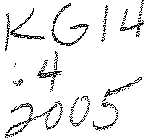 KG14
:4
2005